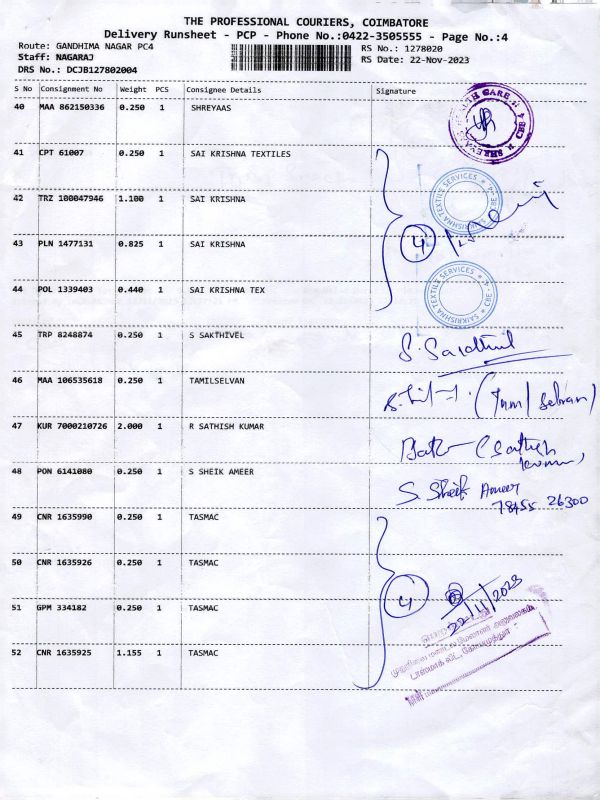 THE PROFESSIONAL COURIERS, COIMBATORE
Delivery Runsheet - PCP - Phone No.:0422-3505555 - Page No.:4
Route: GANDHIMA NAGAR PC4 RS No.: 1278020
Staff: NAGARAJ RS Date: 22-Nov-2023
DRS No.: DCJB127802004
S No Consignment No Weight PCS Consignee Details Signature
40 MAA 862150336 0.250 1 SHREYAAS
41 CPT 61007 0.250 1 SAI KRISHNA TEXTILES
42 TRZ 100047946 1.100 1 SAI KRISHNA
SAIKRISHNA TEXTILE SERVICES * CBE - 4. *
43 PLN 1477131 0.825 1 SAI KRISHNA
4
44 POL 1339403 0.440 1 SAI KRISHNA TEX
SAIKRISHNA TEXTILE SERVICES * CBE - 4. *
45 TRP 8248874 0.250 1 S SAKTHIVEL
46 MAA 106535618 0.250 1 TAMILSELVAN
47 KUR 7000210726 2.000 1 R SATHISH KUMAR
48 PON 6141080 0.250 1 S SHEIK AMEER
S. Sheik Ameer
78455 26300
49 CNR 1635990 0.250 1 TASMAC
50 CNR 1635926 0.250 1 TASMAC
4
22/11/2023
51 GPM 334182 0.250 1 TASMAC
52 CNR 1635925 1.155 1 TASMAC